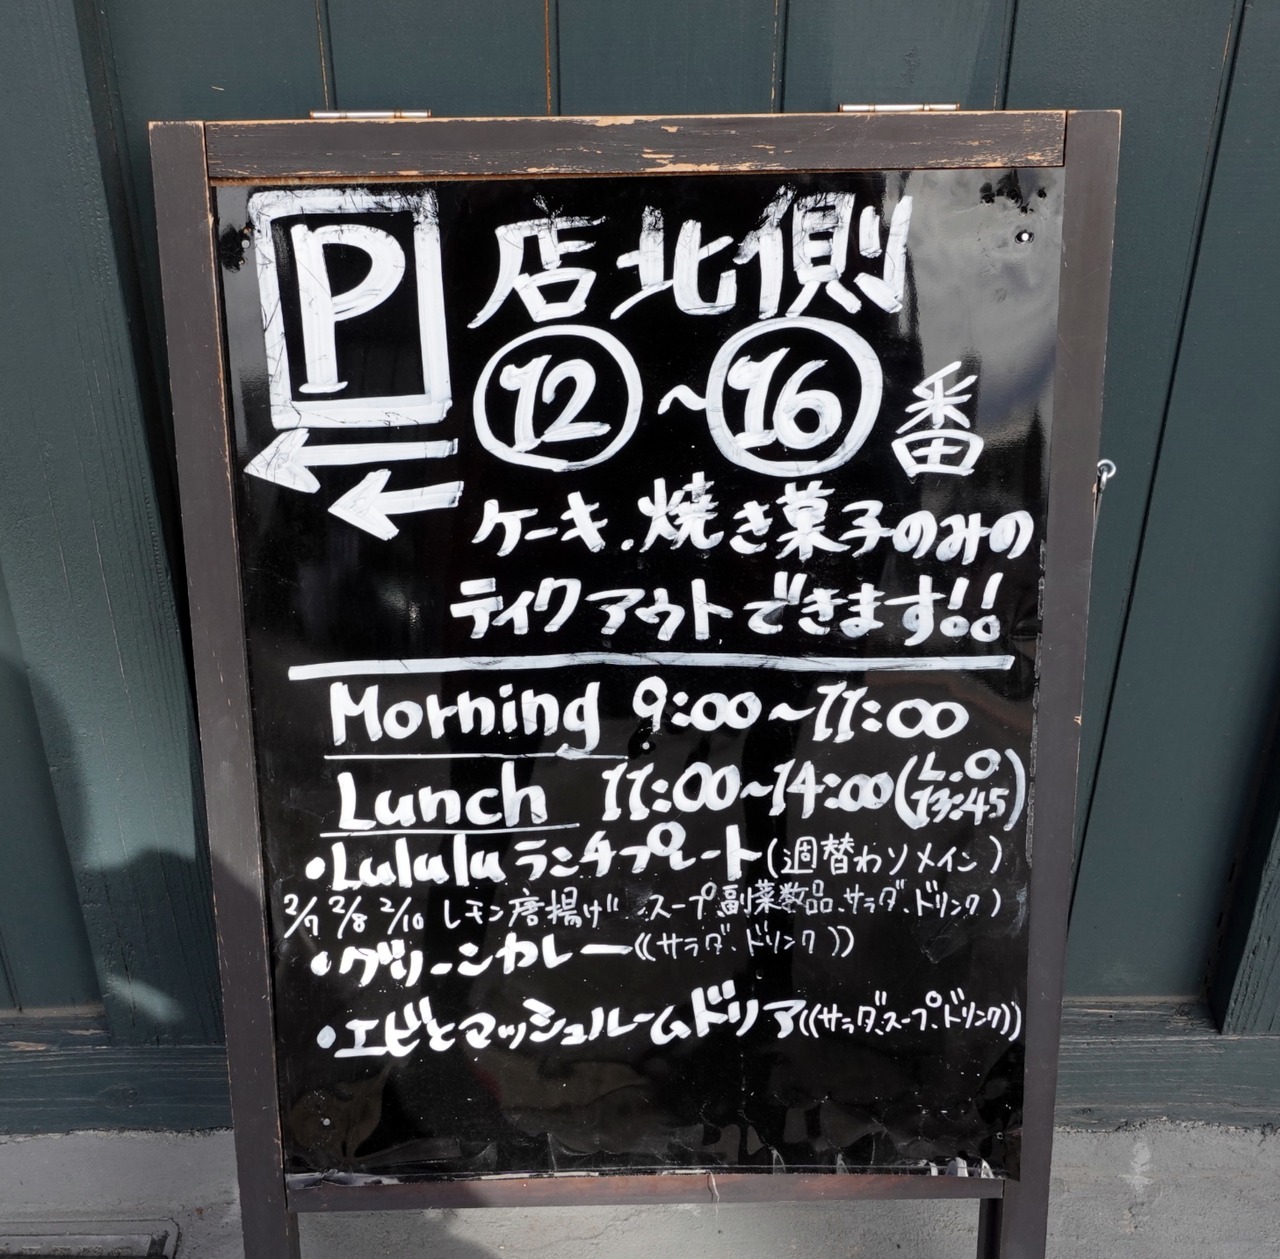 P 店北側
⑫~⑯番
ケーキ.焼き菓子のみの
テイクアウトできます!!
Morning 9:00~11:00
Lunch 11:00~14:00(L.O 13:45)
・Lululuランチプレート(週替わりメイン)
2/7 2/8 2/10 レモン唐揚げ スープ.副菜数品.サラダ.ドリンク)
・グリーンカレー((サラダ.ドリンク))
・エビとマッシュルームドリア((サラダ.スープ.ドリンク))